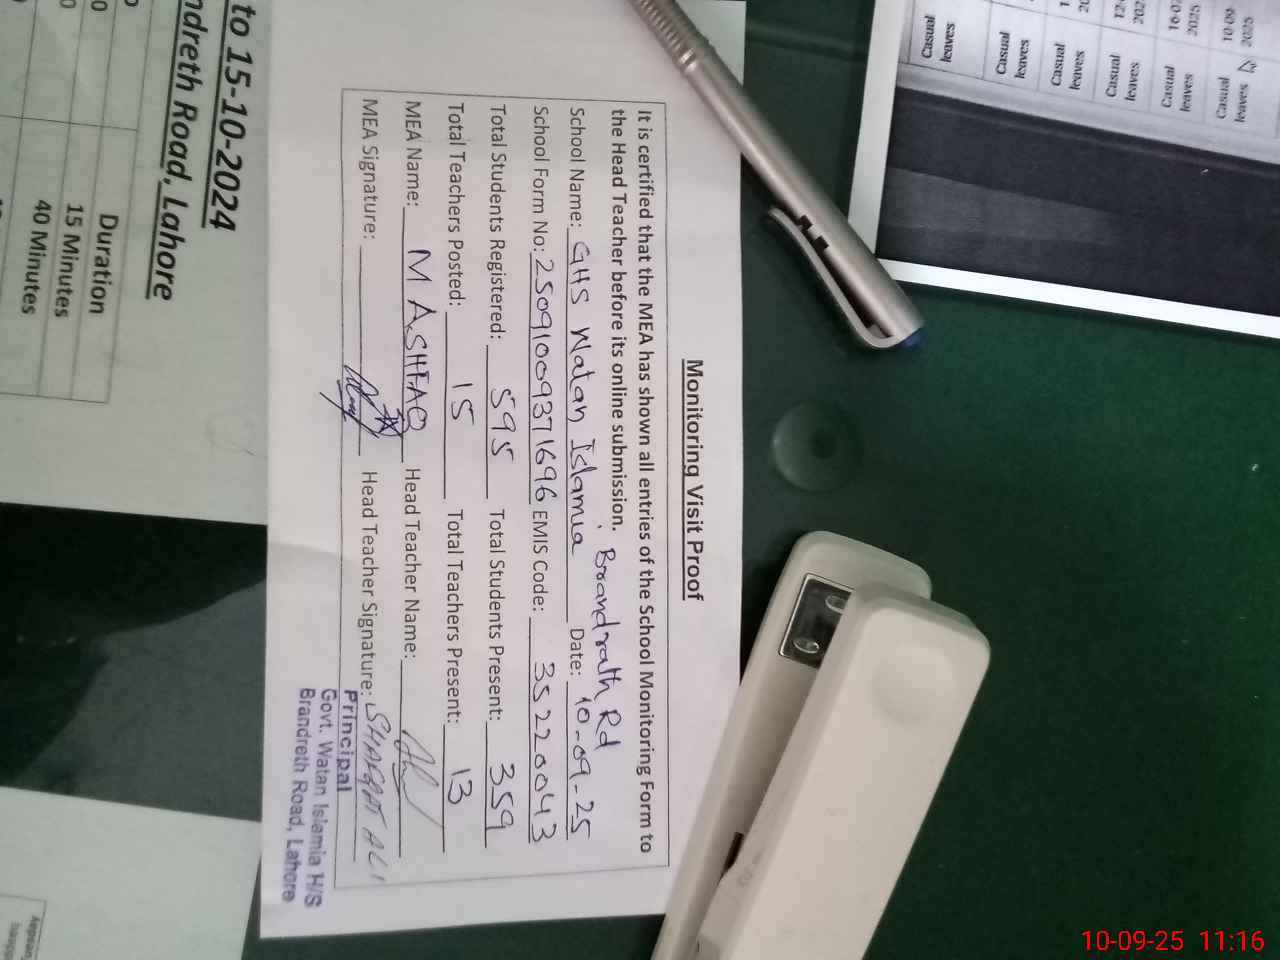 Monitoring Visit Proof
It is certified that the MEA has shown all entries of the School Monitoring Form to
the Head Teacher before its online submission.
School Name: GHS Watan Islamia, Brandrath Rd Date: 10-09-25
School Form No: 25091009371696 EMIS Code: 35220043
Total Students Registered: 595 Total Students Present: 359
Total Teachers Posted: 15 Total Teachers Present: 13
MEA Name: M ASHFAQ Head Teacher Name:
MEA Signature: Head Teacher Signature: SHAFQAT ALI
Principal
Govt. Watan Islamia H/S
Brandreth Road, Lahore
to 15-10-2024
ndreth Road, Lahore
Duration
15 Minutes
40 Minutes
2025
10-09
Casual
leaves
2025
Casual
leaves
Casual
leaves
Casual
leaves
Casual
leaves
Casual
leaves
10-09-25 11:16